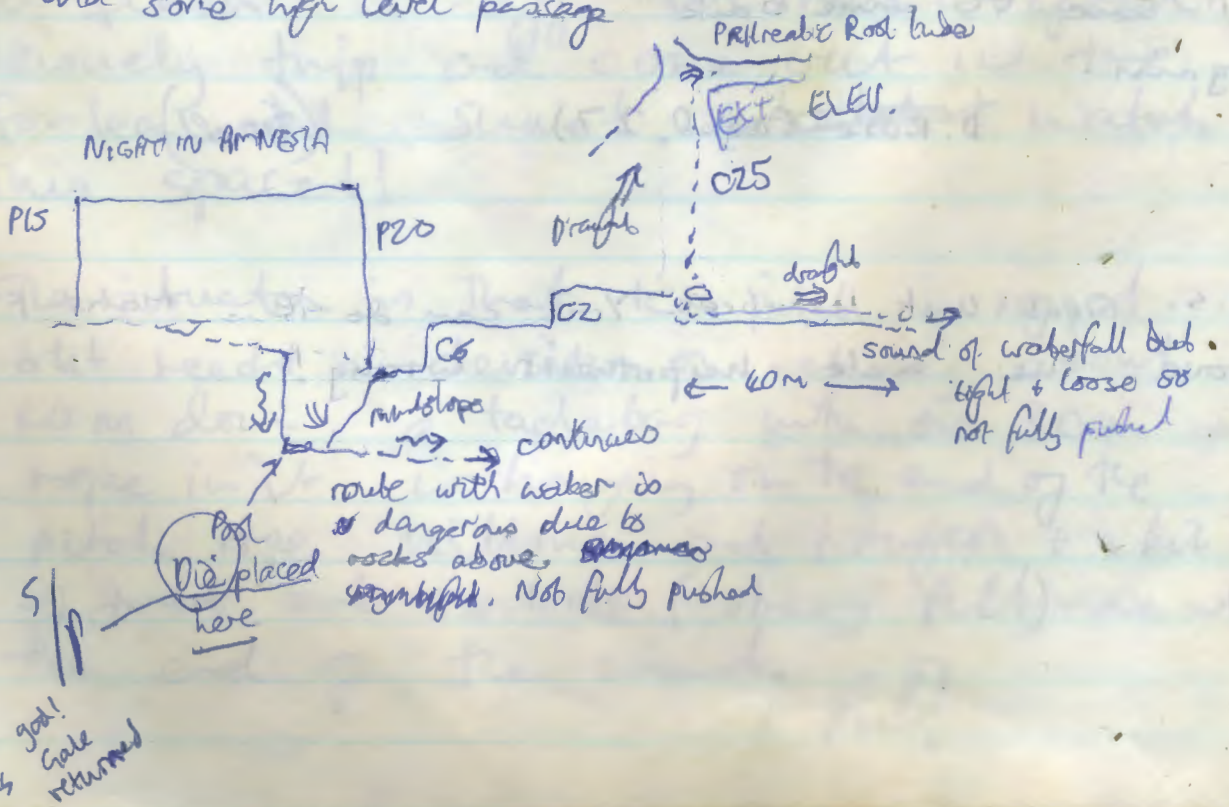 some high level passage
PR(H)reatic Roof tube
EXT ELEV.
NIGHT IN AMNESIA
P15
P20
C25
Draught
draught
C2
C6
sound of waterfall but
tight & loose so
not fully pushed
← 40m →
mudslope
continues
route with water is
dangerous due to
rocks above.
Not fully pushed
Pool
Die placed
here
S/P
god!
Gale
returned